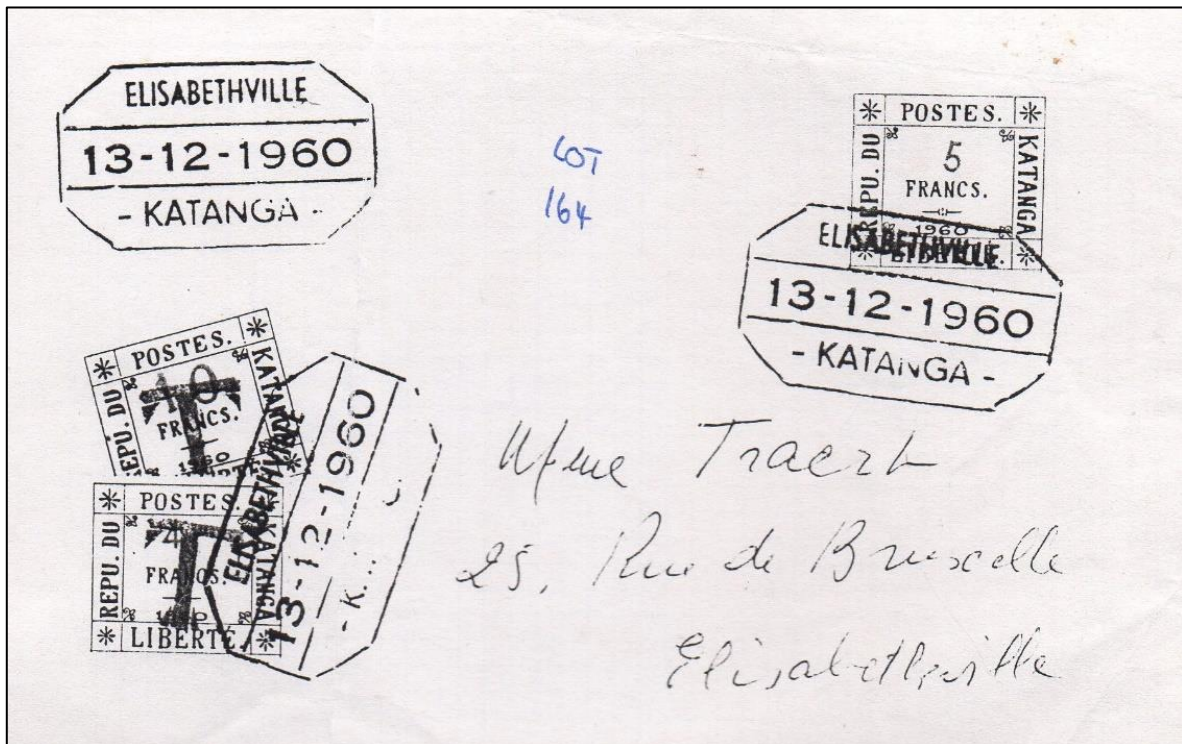 ELISABETHVILLE
13-12-1960
- KATANGA -
LOT
164
POSTES.
REPU. DU
5
FRANCS.
1960
KATANGA
ELISABETHVILLE
13-12-1960
- KATANGA -
POSTES.
REPU. DU
10
FRANCS.
1960
KATANGA
T
POSTES.
REPU. DU
4
FRANCS.
1960
KATANGA
LIBERTÉ.
T
ELISABETHVILLE
13-12-1960
- K
Mme Traert
25, Rue de Bruxelle
Elisabethville